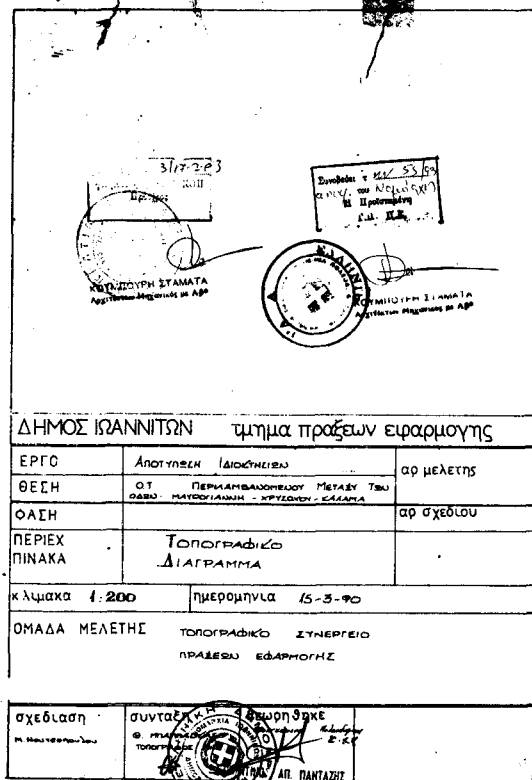 3/17-2-93
ΚΟΥΜΠΟΥΡΗ ΣΤΑΜΑΤΑ
Αρχιτέκτων Μηχανικός με Αβο
Συνοδεύει τ
Η Προϊσταμένη
ΚΟΥΜΠΟΥΡΗ ΣΤΑΜΑΤΑ
Αρχιτέκτων Μηχανικός με Αβο
ΔΗΜΟΣ ΙΩΑΝΝΙΤΩΝ τμημα πραξεων εφαρμογης
ΕΡΓΟ ΑΠΟΤΥΠΩΣΗ ΙΔΙΟΚΤΗΣΙΩΝ αρ μελετης
ΘΕΣΗ Ο.Τ ΠΕΡΙΛΑΜΒΑΝΟΜΕΝΟΥ ΜΕΤΑΞΥ ΤΩΝ
ΟΔΩΝ ΜΑΥΡΟΓΙΑΝΝΗ - ΧΡΥΣΟΧΟΥ - ΚΑΛΑΜΑ
ΦΑΣΗ αρ σχεδιου
ΠΕΡΙΕΧ ΤΟΠΟΓΡΑΦΙΚΟ
ΠΙΝΑΚΑ ΔΙΑΓΡΑΜΜΑ
κλιμακα 1:200 ημερομηνια 15-3-90
ΟΜΑΔΑ ΜΕΛΕΤΗΣ ΤΟΠΟΓΡΑΦΙΚΟ ΣΥΝΕΡΓΕΙΟ
ΠΡΑΞΕΩΝ ΕΦΑΡΜΟΓΗΣ
σχεδιαση συνταξη θεωρηθηκε
ΑΠ. ΠΑΝΤΑΖΗΣ